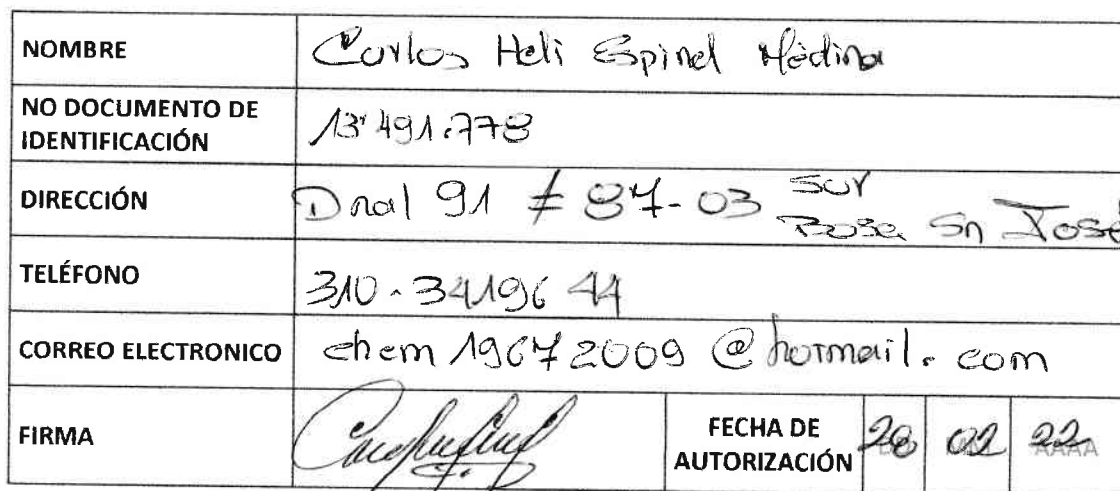 NOMBRE Carlos Heli Espinel Medina
NO DOCUMENTO DE
IDENTIFICACIÓN 13'491.778
DIRECCIÓN Dnal 91 # 87-03 sur
Bosa Sn José
TELÉFONO 310-3419644
CORREO ELECTRONICO chem19672009@hotmail.com
FIRMA
FECHA DE
AUTORIZACIÓN 28 02 22